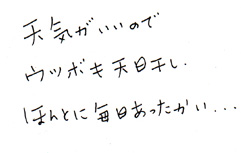 天気がいいので
ウツボも天日干し.
ほんとに毎日あったかい...